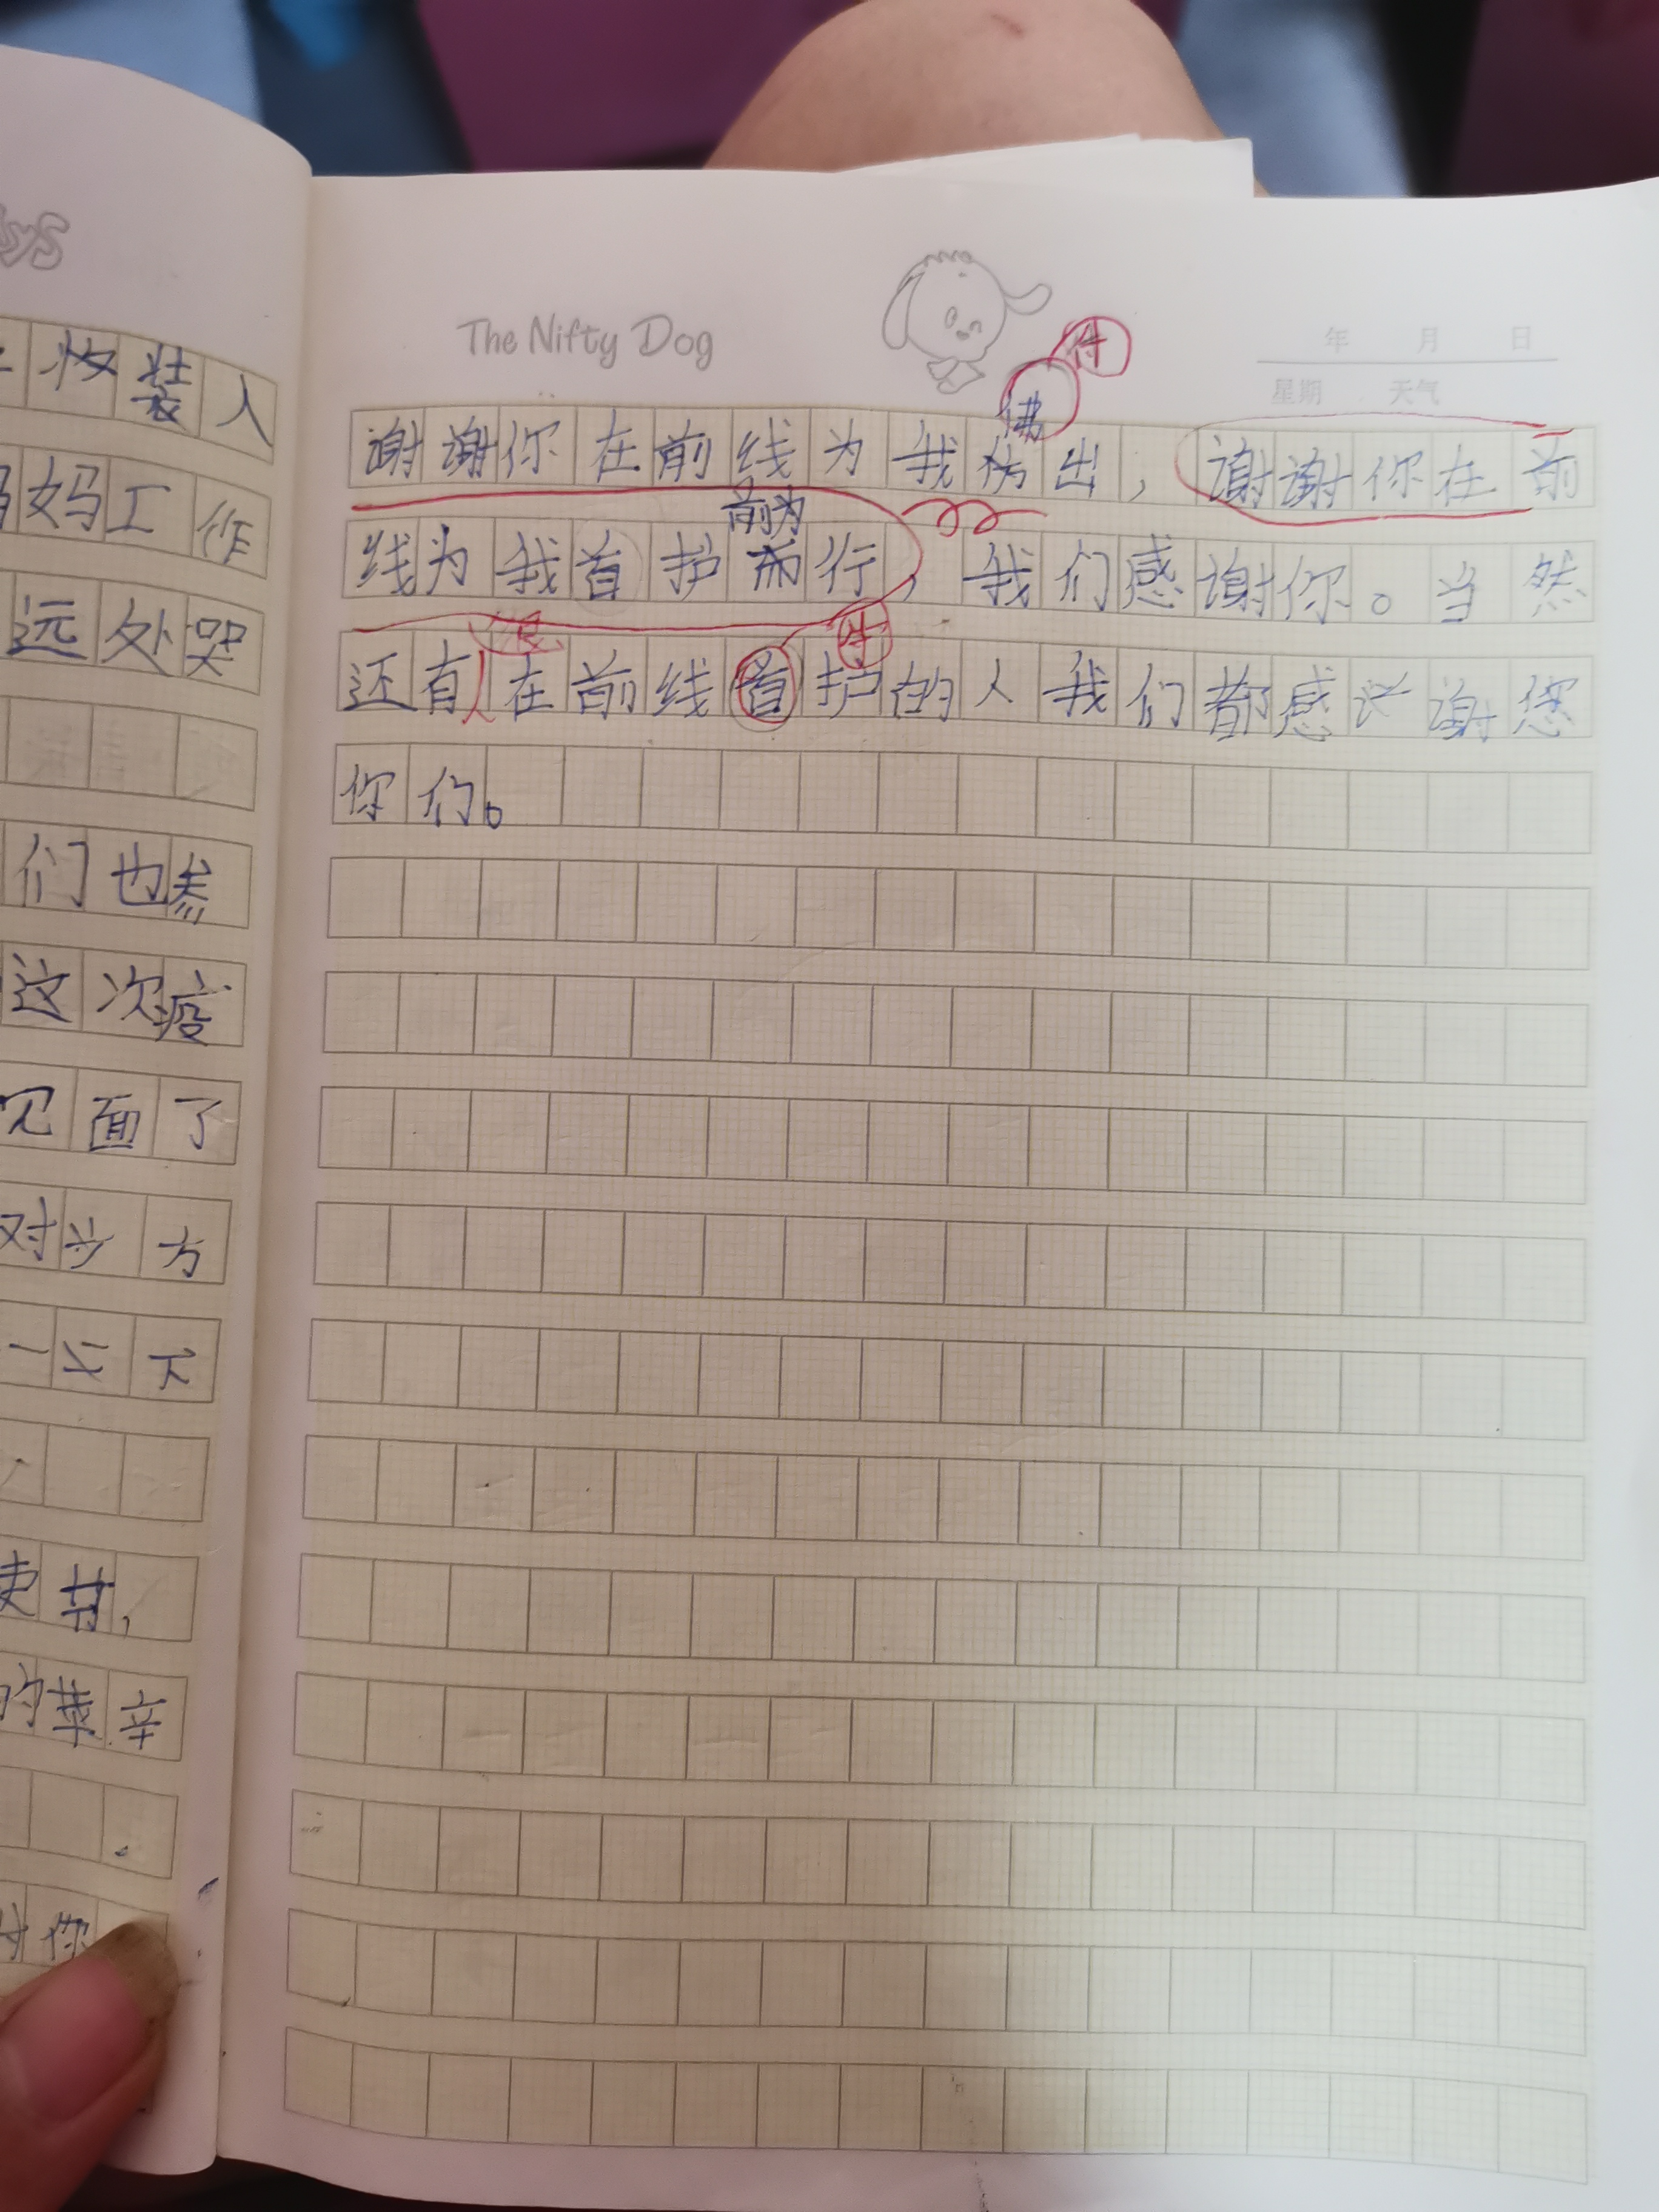 妆装人
妈工作
远处哭
们也参
这次疫
见面了
对方
一下
的 辛
你
The Nifty Dog
年 月 日
星期 天气
付
谢谢你在前线为我出，谢谢你在前
前为
线为我首护而行，我们感谢你。当然
很 守
还有在前线首护的人我们都感谢您
你们。